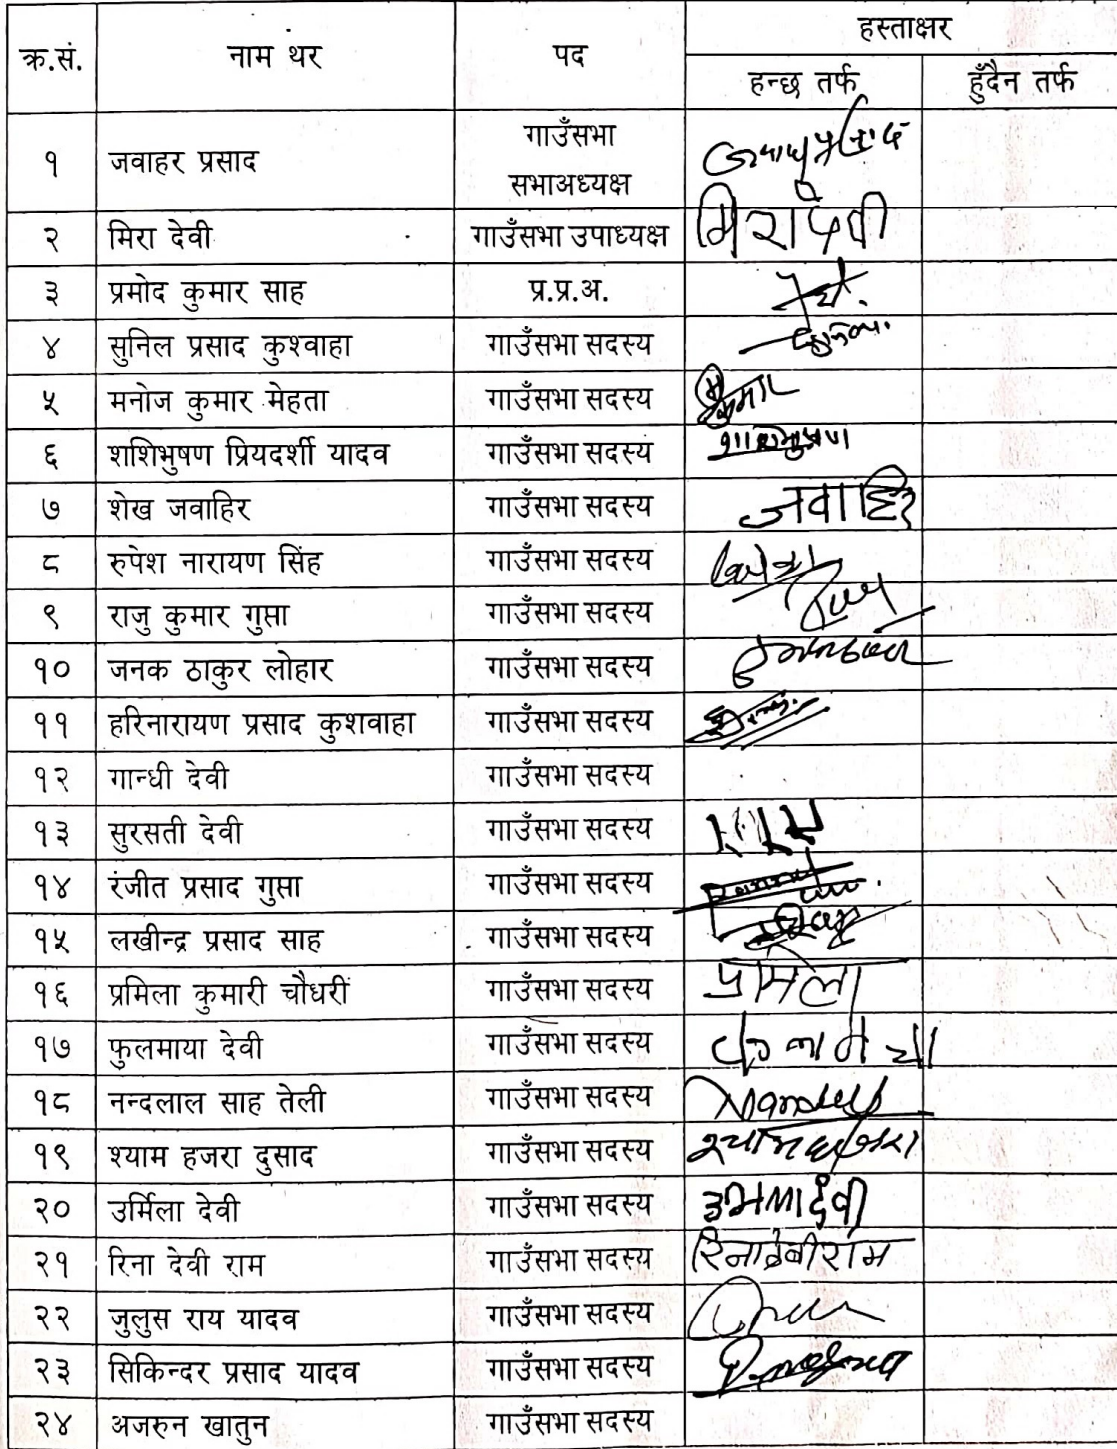 क्र.सं. नाम थर पद हस्ताक्षर
हन्छ तर्फ हुँदैन तर्फ
१ जवाहर प्रसाद गाउँसभा
सभाअध्यक्ष
२ मिरा देवी गाउँसभा उपाध्यक्ष मिरादेवी
३ प्रमोद कुमार साह प्र.प्र.अ.
४ सुनिल प्रसाद कुश्वाहा गाउँसभा सदस्य
५ मनोज कुमार मेहता गाउँसभा सदस्य
६ शशिभुषण प्रियदर्शी यादव गाउँसभा सदस्य
७ शेख जवाहिर गाउँसभा सदस्य जवाहिर
८ रुपेश नारायण सिंह गाउँसभा सदस्य
९ राजु कुमार गुप्ता गाउँसभा सदस्य
१० जनक ठाकुर लोहार गाउँसभा सदस्य
११ हरिनारायण प्रसाद कुशवाहा गाउँसभा सदस्य
१२ गान्धी देवी गाउँसभा सदस्य
१३ सुरसती देवी गाउँसभा सदस्य
१४ रंजीत प्रसाद गुप्ता गाउँसभा सदस्य
१५ लखीन्द्र प्रसाद साह गाउँसभा सदस्य
१६ प्रमिला कुमारी चौधरी गाउँसभा सदस्य प्रमिला
१७ फुलमाया देवी गाउँसभा सदस्य
१८ नन्दलाल साह तेली गाउँसभा सदस्य
१९ श्याम हजरा दुसाद गाउँसभा सदस्य
२० उर्मिला देवी गाउँसभा सदस्य
२१ रिना देवी राम गाउँसभा सदस्य रिनादेवीराम
२२ जुलुस राय यादव गाउँसभा सदस्य
२३ सिकिन्दर प्रसाद यादव गाउँसभा सदस्य
२४ अजरुन खातुन गाउँसभा सदस्य